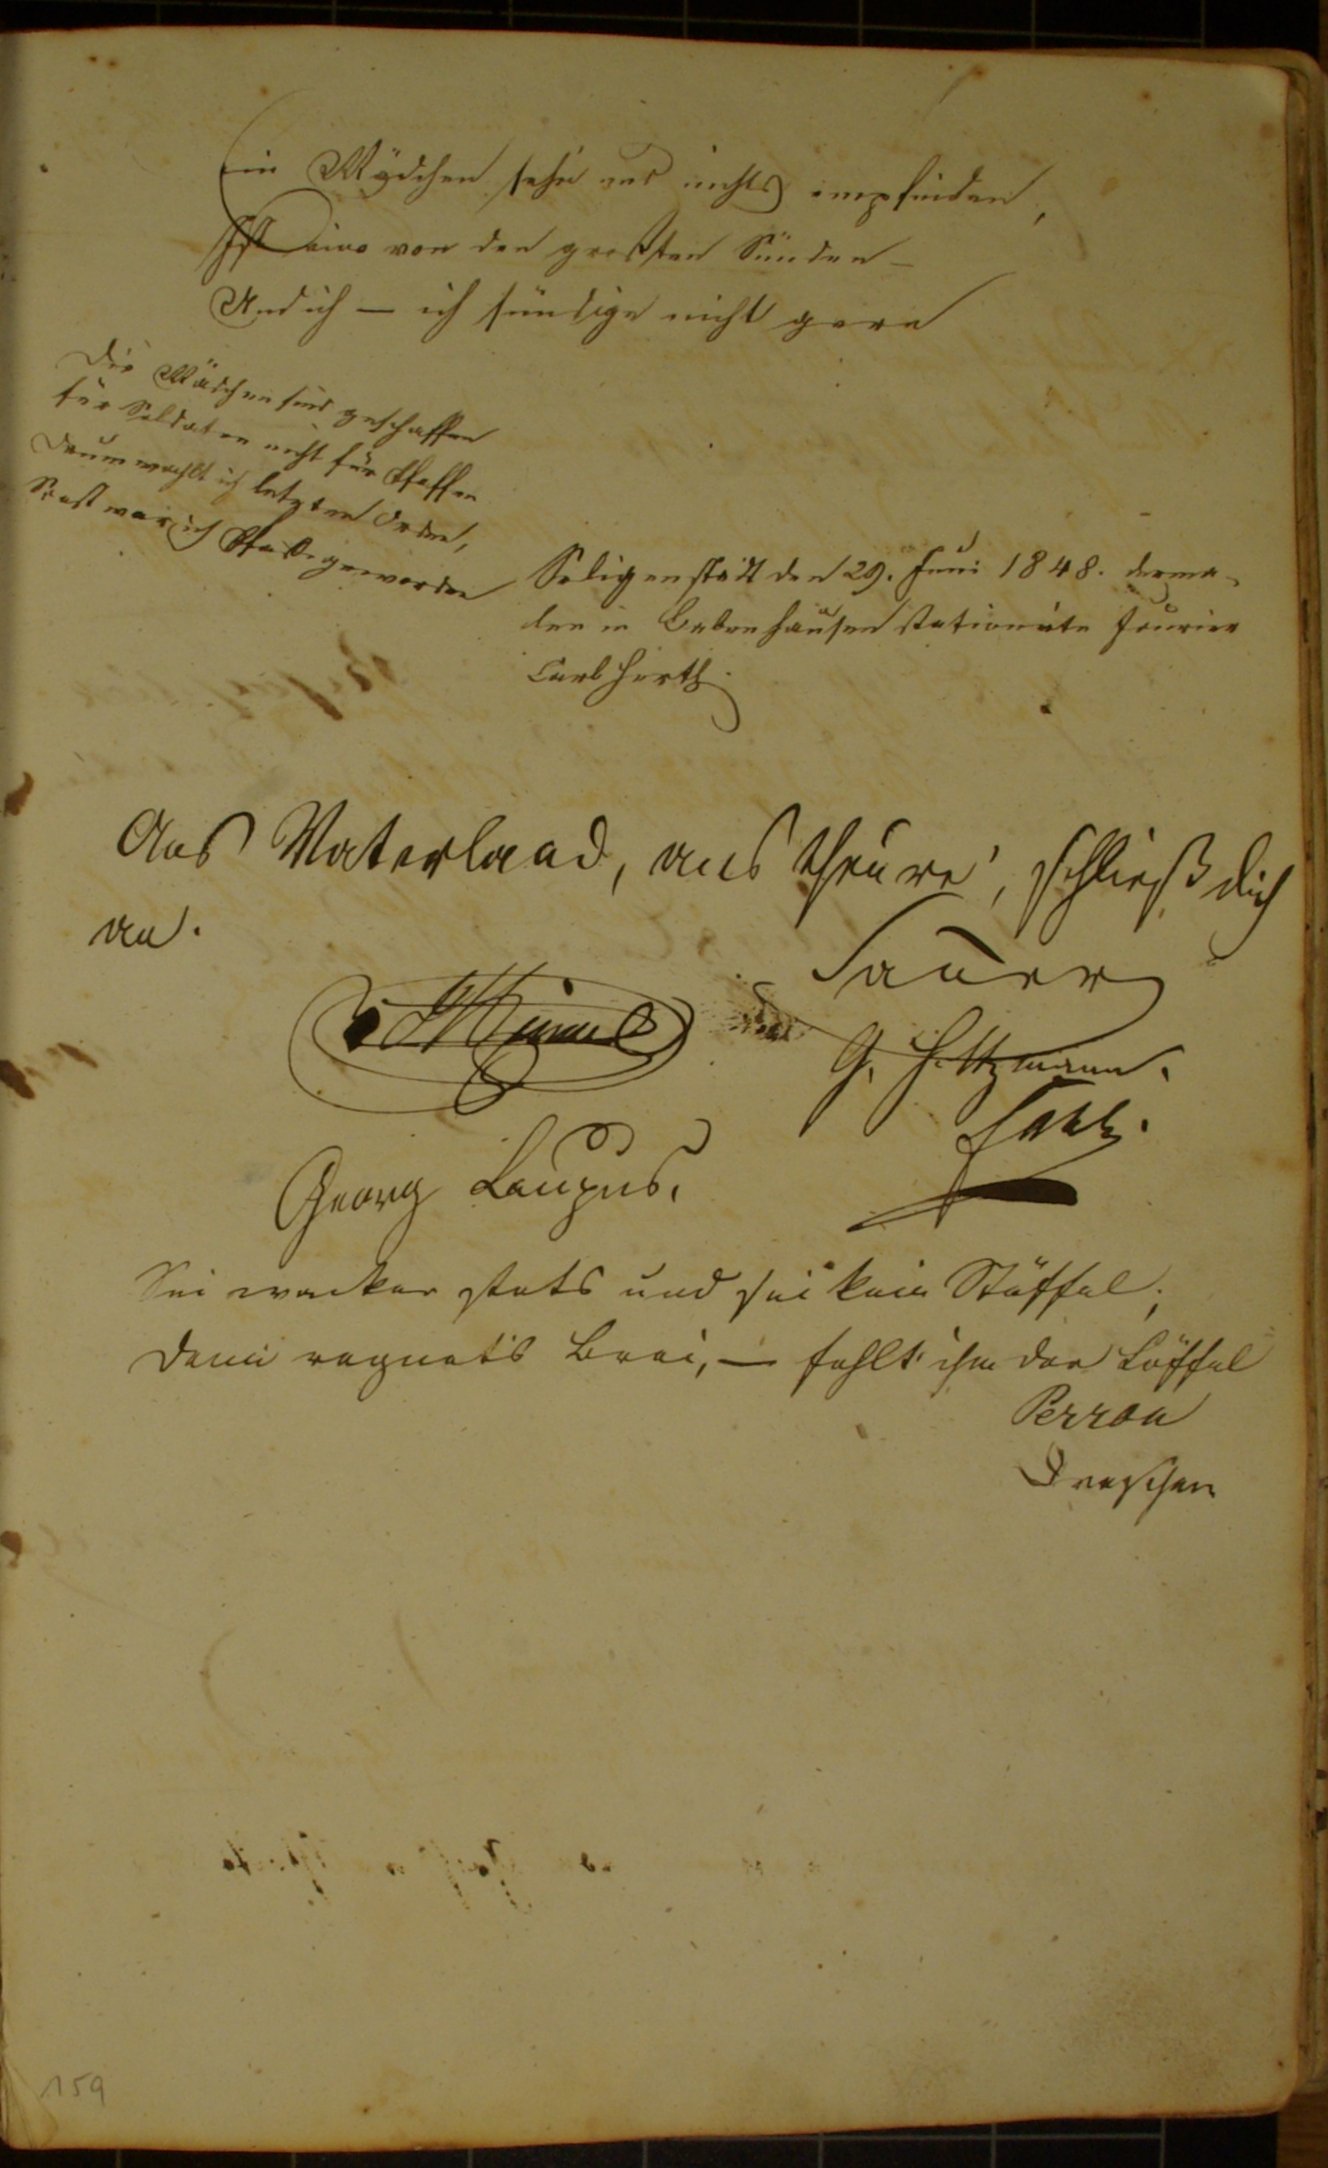 Ein Mädchen sehn und nichts empfinden,
Ist eine von den großten Sünden –
Und ich – ich sündige nicht gern
Die Mädchen sind geschaffen
für Soldaten nicht für Pfaffen
Drum wählt ich letzten Orden,
Sonst war ich Pfaffe geworden
Seligenstadt den 29. Juni 1848. derma-
len in Babenhausen stationirte Fourier
Carl Hirth.
Ans Vaterland, ans theure, schließ dich
an.
Sauer
G. Hitzmann.
Georg Laupus.
Sei wacker stets und sei kein Stöffel;
Denn regnet's Brei, – fehlt ihm der Löffel
Perron
Draschen
159